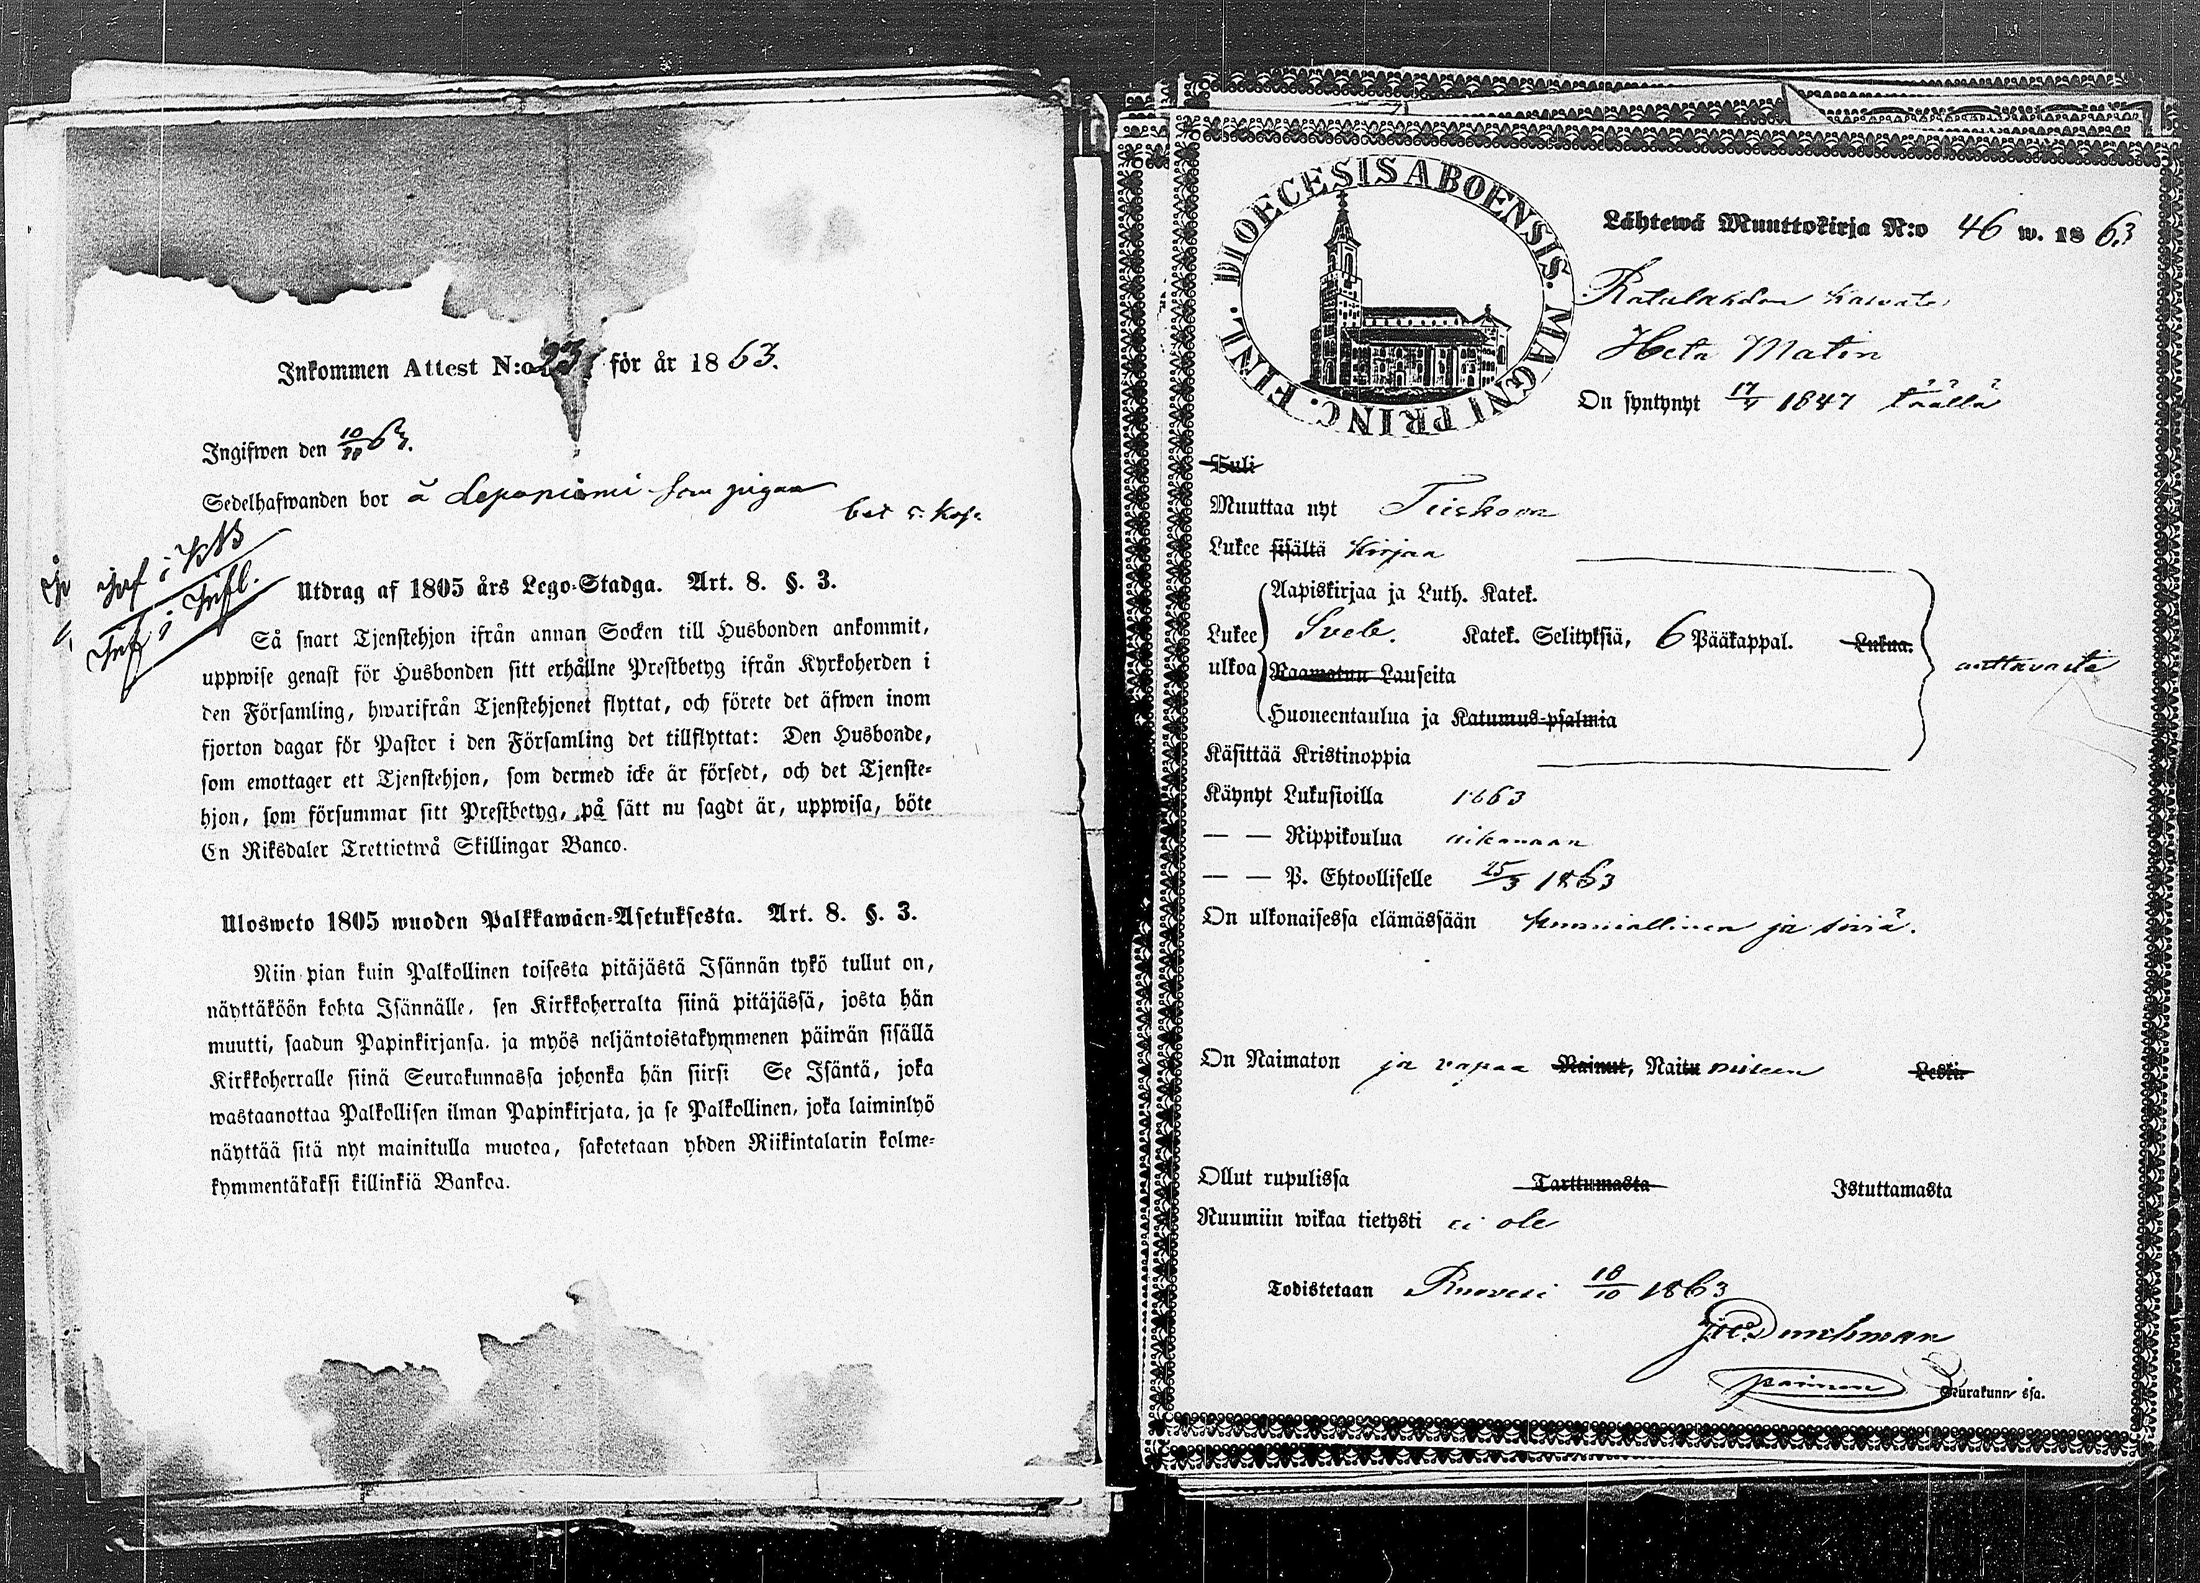 Inkommen Attest N:o 23 för år 1863.
Ingifwen den 10/11 63.
Sedelhafwanden bor å Leponiemi som pigan
bet 5 kop.
inf i KB
Inf i Infl.
Utdrag af 1805 års Lego-Stadga. Art. 8. §. 3.
Så snart Tjenstehjon ifrån annan Socken till Husbonden ankommit,
uppwise genast för Husbonden sitt erhållne Prestbetyg ifrån Kyrkoherden i
den Församling, hwarifrån Tjenstehjonet flyttat, och förete det äfwen inom
fjorton dagar för Pastor i den Församling det tillflyttat: Den Husbonde,
som emottager ett Tjenstehjon, som dermed icke är försedt, och det Tjenste-
hjon, som försummar sitt Prestbetyg, på sätt nu sagdt är, uppwisa, böte
En Riksdaler Trettiotwå Skillingar Banco.
Ulosweto 1805 wuoden Palkkawäen-Asetuksesta. Art. 8. §. 3.
Niin pian kuin Palkollinen toisesta pitäjästä Isännän tykö tullut on,
näyttäköön kohta Isännälle, sen Kirkkoherralta siinä pitäjässä, josta hän
muutti, saadun Papinkirjansa, ja myös neljäntoistakymmenen päiwän sisällä
Kirkkoherralle siinä Seurakunnassa johonka hän siirsi Se Isäntä, joka
wastaanottaa Palkollisen ilman Papinkirjata, ja se Palkollinen, joka laiminlyö
näyttää sitä nyt mainitulla muotoa, sakotetaan yhden Riikintalarin kolme-
kymmentäkaksi killinkiä Bankoa.
DIOECESIS ABOENSIS. MAGNI PRINC. FINL.
Lähtewä Muuttokirja N:o 46 w. 1863
Ratulahden
Heta Matin
On syntynyt 17/4 1847 täällä
Suli
Muuttaa nyt Teiskoon
Lukee sisältä Kirjaa
Aapiskirjaa ja Luth. Katek.
Lukee ulkoa Sveb. Katek. Selityksiä, 6 Pääkappal. Lukua.
Raamatun Lauseita
auttavasti
Huoneentaulua ja Katumus-psalmia
Käsittää Kristinoppia
Käynyt Lukusioilla 1863
— — Rippikoulua aikanaan
— — P. Ehtoolliselle 25/3 1863
On ulkonaisessa elämässään kunniallinen ja siviä.
On Naimaton ja vapaa Nainut, Naitu miseen Leski.
Ollut rupulissa Tarttumasta Istuttamasta
Ruumiin wikaa tietysti ei ole
Todistetaan Ruovesi 18/10 1863
Joc. Dunckman
Seurakunnassa.